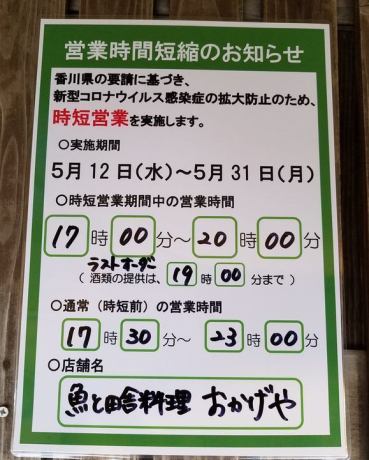 営業時間短縮のお知らせ
香川県の要請に基づき、
新型コロナウイルス感染症の拡大防止のため、
時短営業を実施します。
○実施期間
5月12日(水)～5月31日(月)
○時短営業期間中の営業時間
17時00分～20時00分
ラストオーダー
(酒類の提供は、19時00分まで)
○通常(時短前)の営業時間
17時30分～23時00分
○店舗名
魚と田舎料理 おかげや